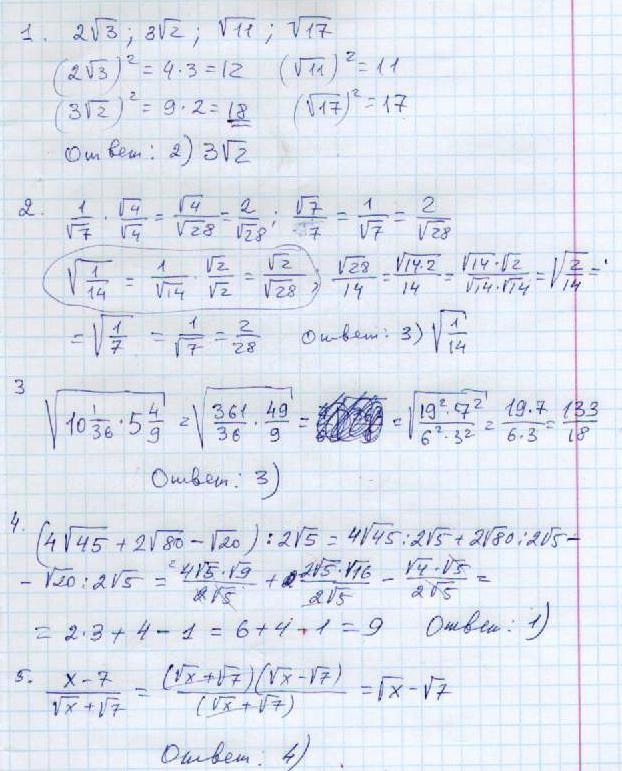 1. 2√3 ; 3√2 ; √11 ; √17
(2√3)² = 4·3 = 12 (√11)² = 11
(3√2)² = 9·2 = 18 (√17)² = 17
Ответ: 2) 3√2
2. 1/√7 · √4/√4 = √4/√28 = 2/√28 ; √7/7 = 1/√7 = 2/√28
√(1/14) = 1/√14 · √2/√2 = √2/√28 , √28/14 = √(14·2)/14 = (√14·√2)/(√14·√14) = √(2/14) =
= √(1/7) = 1/√7 = 2/28 Ответ: 3) √(1/14)
3 √(10 1/36 · 5 4/9) = √(361/36 · 49/9) = = √((19²·7²)/(6²·3²)) = (19·7)/(6·3) = 133/18
Ответ: 3)
4. (4√45 + 2√80 − √20) : 2√5 = 4√45 : 2√5 + 2√80 : 2√5 −
− √20 : 2√5 = (4√5·√9)/(2√5) + (2√5·√16)/(2√5) − (√4·√5)/(2√5) =
= 2·3 + 4 − 1 = 6 + 4 − 1 = 9 Ответ: 1)
5. (x − 7)/(√x + √7) = ((√x + √7)(√x − √7))/(√x + √7) = √x − √7
Ответ: 4)